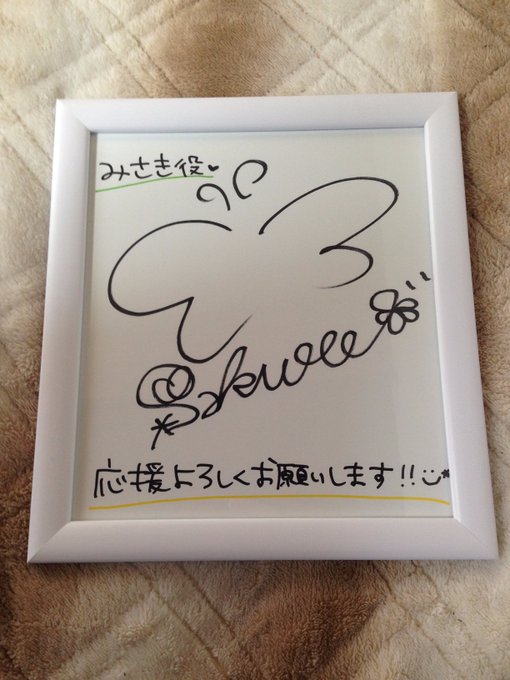 みさき役♥
Sakura
応援よろしくお願いします!!